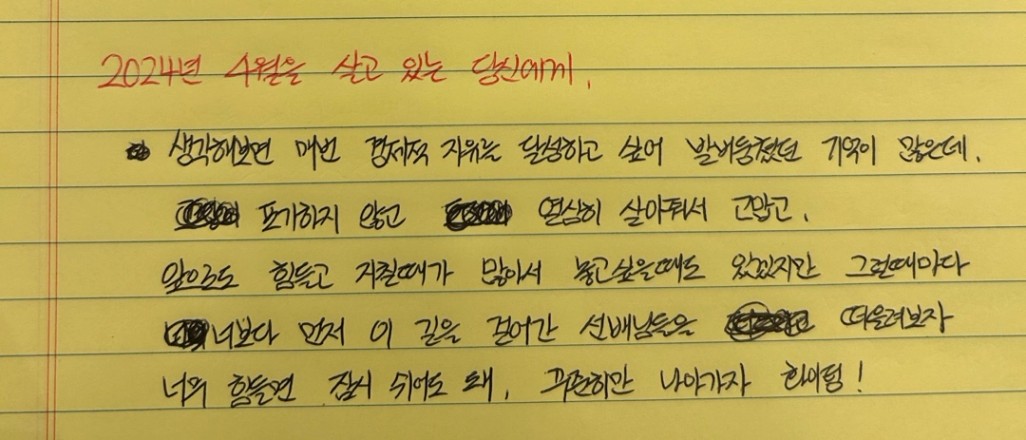 2024년 4월을 살고 있는 당신에게.
생각해보면 매번 경제적 자유를 달성하고 싶어 발버둥쳤던 기억이 많은데.
포기하지 않고 열심히 살아줘서 고맙고.
앞으로도 힘들고 지칠때가 많아서 놓고싶을때도 있겠지만 그럴때마다
너보다 먼저 이 길을 걸어간 선배님들을 떠올려보자
너무 힘들면 잠시 쉬어도 돼. 꾸준히만 나아가자 화이팅!